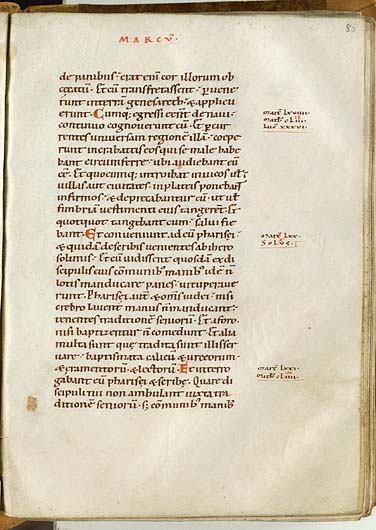 MARCV̄·
80
de panibus · erat enī cor illorum ob
cecatū · Et cū transfretassent · peruene
runt in terrā genesareth · & applicu
erunt · Cumq; egressi eēnt de naui ·
continuo cognouerunt eū · Et pcur
rentes uniuersam regionē illā · coepe
runt in crabattis eos qui se male habe
bant circumferre · ubi audiebant eū
eē · Et quocumq; introibat in uicos ul in
uillas aut ciuitates · in plateis ponebant
infirmos · & deprecabantur eū · ut ul
fimbriā uestimenti eius tangerent · Et
quotquot tangebant eum · salui fie
bant · Et conueniunt ad eū pharisei ·
& quidā de scribis uenientes ab iero
solimis · Et cū uidissent quosdā ex di
scipulis eius cōmunib; manib; id ē n̄
lotis manducare panes · uituperaue
runt · Pharisei autē & om̄s iudei · nisi
crebro lauent manus n̄ manducant ·
tenentes traditionē seniorū · Et a foro ·
nisi baptizentur n̄ comedunt · Et alia
multa sunt quę tradita sunt illis ser
uare · baptismata calicū & urceorum ·
& eramentorū · & lectorū · Et interro
gabant eū pharisei & scribę · Quare di
scipuli tui non ambulant iuxta tra
ditionē seniorū · s; cōmunib; manib;
marc̄ lxviiii ·
math̄ cliii ·
luc̄ xxxvi ·
marc̄ lxx ·
Solus ·
marc̄ lxxi ·
math̄ cliiii ·